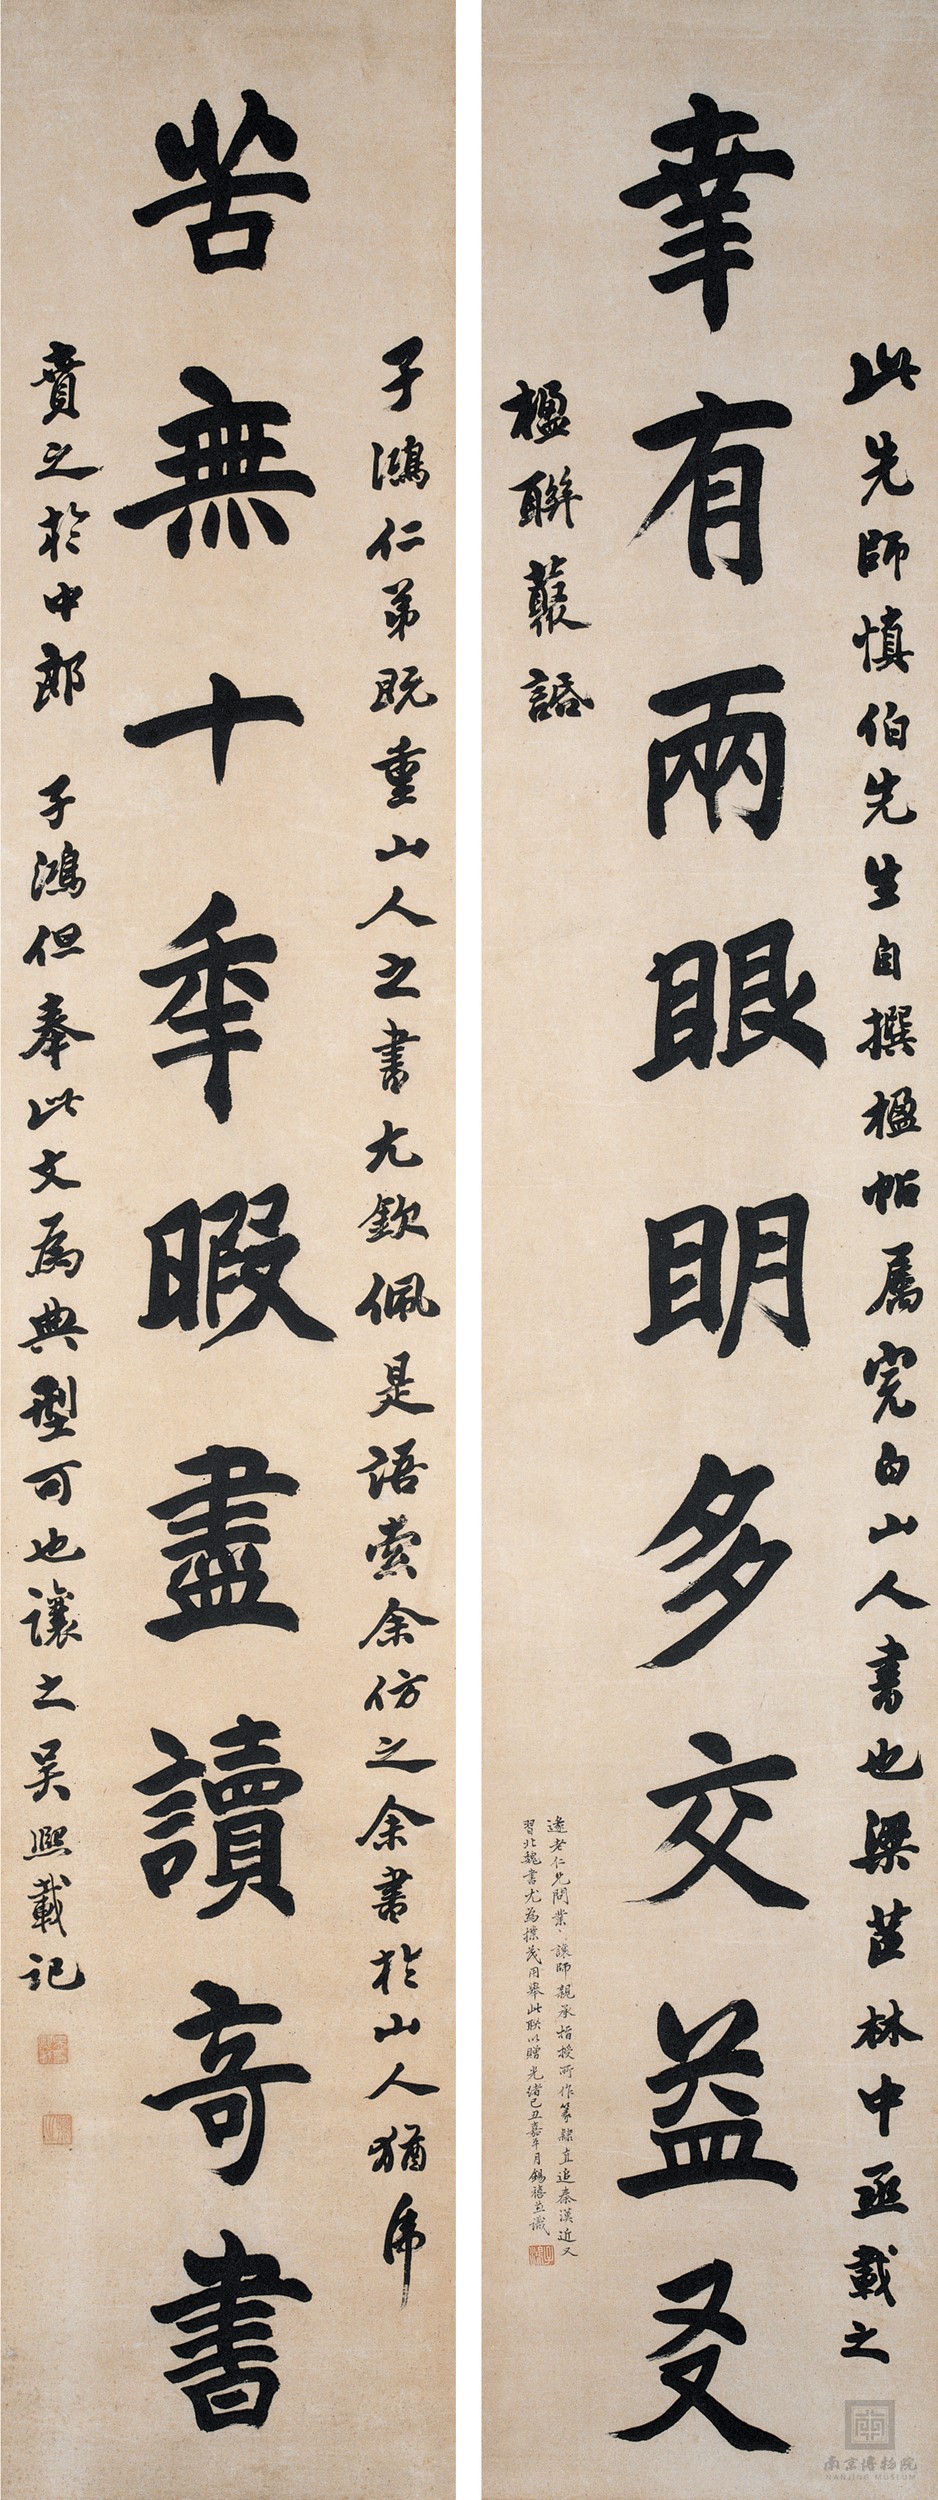 幸有兩眼明多交益友
此先師慎伯先生自撰楹帖屬完白山人書也梁茝林中丞載之
楹聯叢話
遠老仁兄問業讓師親承指授所作篆隸直追秦漢近又
習北魏書尤為樸茂用舉此联以贈光緒己丑嘉平月錫禧並識
苦無十年暇盡讀奇書
子鴻仁弟既重山人之書尤欽佩是語索余仿之余書於山人猶虎
賁之於中郎 子鴻但奉此文為典型可也讓之吳熙載記
南京博物院
NANJING MUSEUM